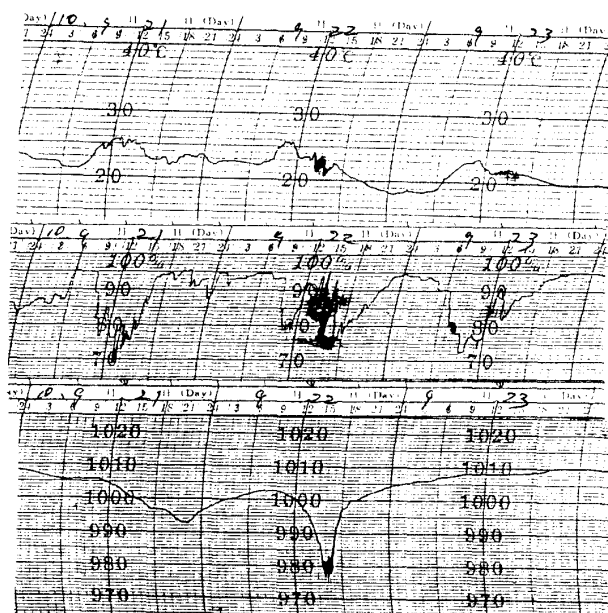 Day) 10. 9 21 日 (Day) 9 22 日 (Day) 9 23
21 24 3 6 9 12 15 18 21 24 3 6 9 12 15 18 21 24 3 6 9 12 15 18 21 24
40℃ 40℃ 40℃
30 30 30
20 20 20
Day) 10. 9 21 日 (Day) 9 22 日 (Day) 9 23 日 (Day)
24 3 6 9 12 15 18 21 24 3 6 9 12 15 18 21 24 3 6 9 12 15 18 21 24
100% 100% 100%
90 90 90
80 80 80
70 70 70
(Day) 10. 9 21 日 (Day) 9 22 日 (Day) 9 23
24 3 6 9 12 15 18 21 24 3 6 9 12 15 18 21 24 3 6 9 12 15 18 21 24
1020 1020 1020
1010 1010 1010
1000 1000 1000
990 990 990
980 980 980
970 970 970